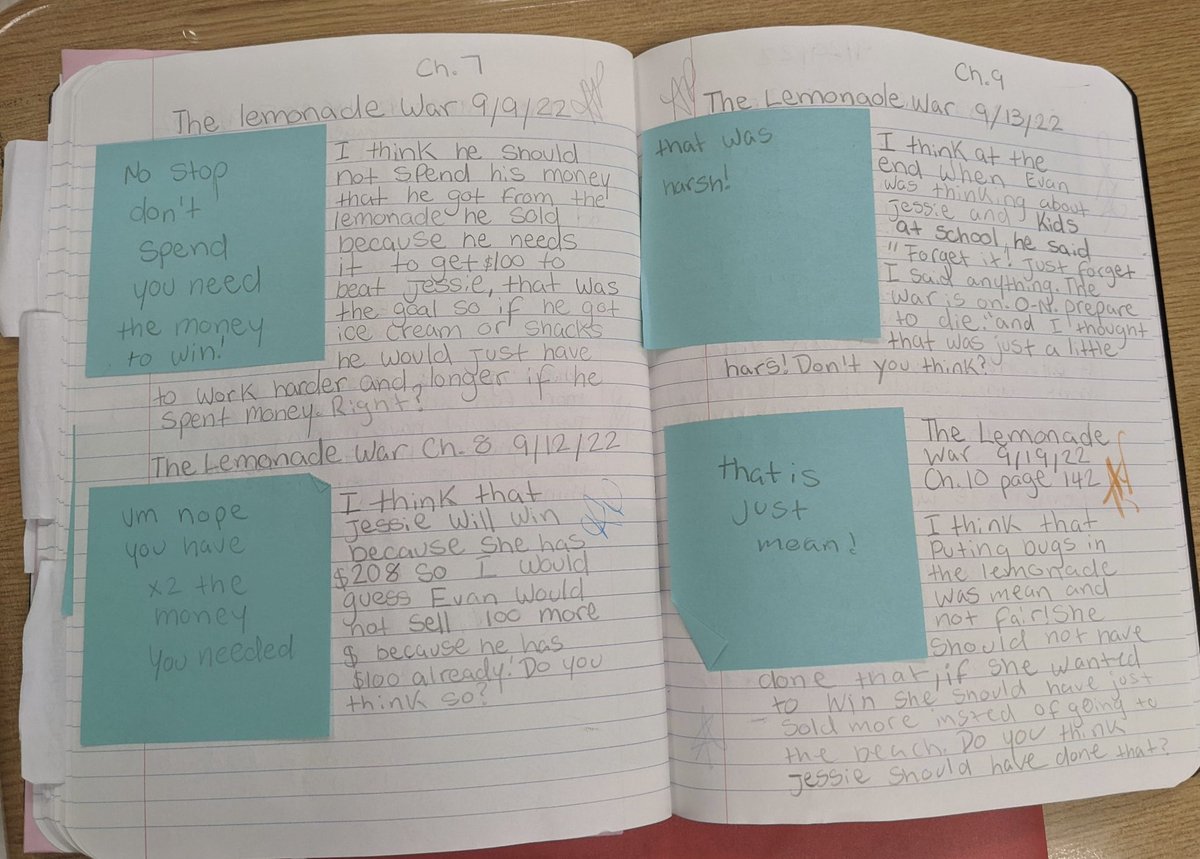 Ch. 7
The lemonade War 9/9/22
No stop
don't
spend
you need
the money
to win!
I think he should
not spend his money
that he got from the
lemonade he sold
because he needs
it to get $100 to
beat Jessie, that was
the goal so if he got
ice cream or snacks
he would just have
to work harder and longer if he
spent money. Right?
The Lemonade War Ch. 8 9/12/22
um nope
you have
x2 the
money
you needed
I think that
Jessie will win
because she has
$208 so I would
guess Evan would
not sell 100 more
$ because he has
$100 already! Do you
think so?
Ch. 9
The Lemonade War 9/13/22
that was
harsh!
I think at the
end when Evan
was thinking about
Jessie and kids
at school, he said
"Forget it! Just forget
I said anything. The
war is on. O-N. prepare
to die." and I thought
that was just a little
hars! Don't you think?
The Lemonade
War 9/19/22
Ch. 10 page 142
that is
just
mean!
I think that
puting bugs in
the lemonade
was mean and
not fair! She
should not have
done that, if she wanted
to win she should have just
sold more insted of going to
the beach. Do you think
Jessie should have done that?